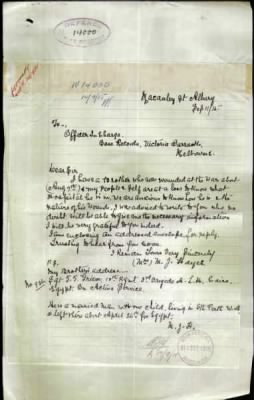 14000
Macauley St Albury
Sep 11/15
To.,
Officer In Charge,
Base Records, Victoria Barracks,
Melbourne.
Dear Sir,
I have a brother who was wounded at the War about
Aug 7th & my People & Self are at a loss to know what
Hospital he is in. We are anxious to know how he is & the
nature of his Wounds. I was advised to write to you who no
doubt will be able to give me the necessary information
I will be very grateful to you indeed.
I am enclosing an addressed envelope for reply.
Trusting to hear from you soon.
I Remain Yours Very Sincerely
(Mrs) M. J. Hayes
P.S.
My Brother's address
10th Regt 3rd Brigade A. L. H. Cairo,
Egypt. On Active Service.
He is a married man with one child, living in Perth
& left there about April for Egypt.
M. J. H.